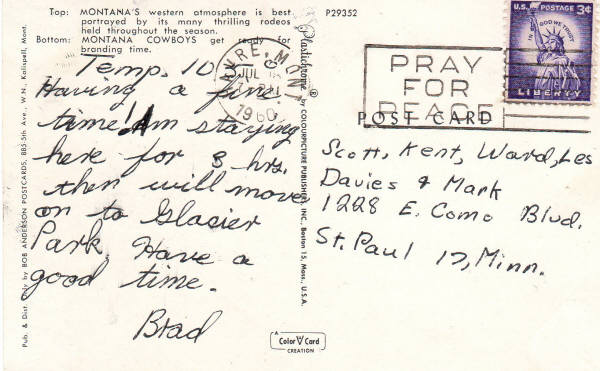 Top: MONTANA'S western atmosphere is best
portrayed by its many thrilling rodeos
held throughout the season.
Bottom: MONTANA COWBOYS get ready for
branding time.
P29352
Temp. 10
Having a fine
time! Am staying
here for 3 hrs.
then will move
on to Glacier
Park. Have a
good time.
Brad
Pub. & Dist. Only by BOB ANDERSON POSTCARDS, 885-5th Ave., W.N., Kalispell, Mont.
Plastichrome ® by COLOURPICTURE PUBLISHERS, INC., Boston 15, Mass., U.S.A.
MONT.
JUL
1960
PRAY
FOR
PEACE
U.S. POSTAGE 3¢
IN GOD WE TRUST
LIBERTY
POST CARD
Scott, Kent, Ward, Les
Davies & Mark
1228 E. Como Blvd.
St. Paul 17, Minn.
A
Color V Card
CREATION